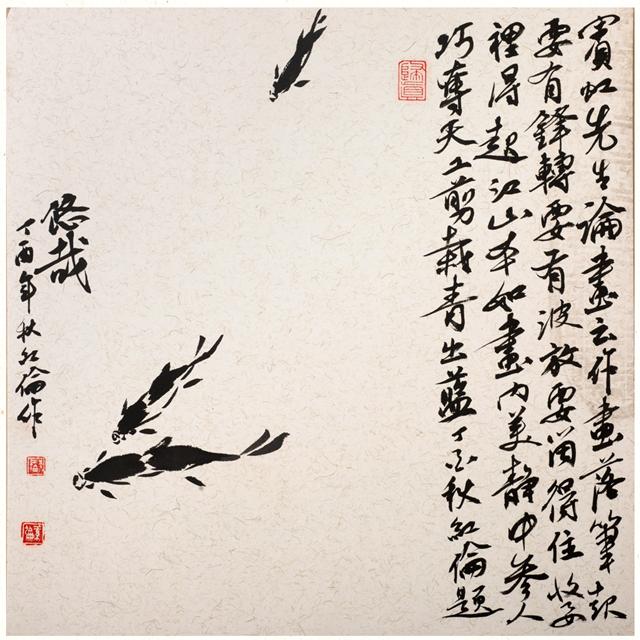 賓虹先生論畫云作畫落筆起
要有鋒轉要有波放要留得住收要
裡得起江山本如畫内美靜中參人
巧奪天工剪裁青出藍丁酉秋紅倫題
悠哉
丁酉年秋紅倫作